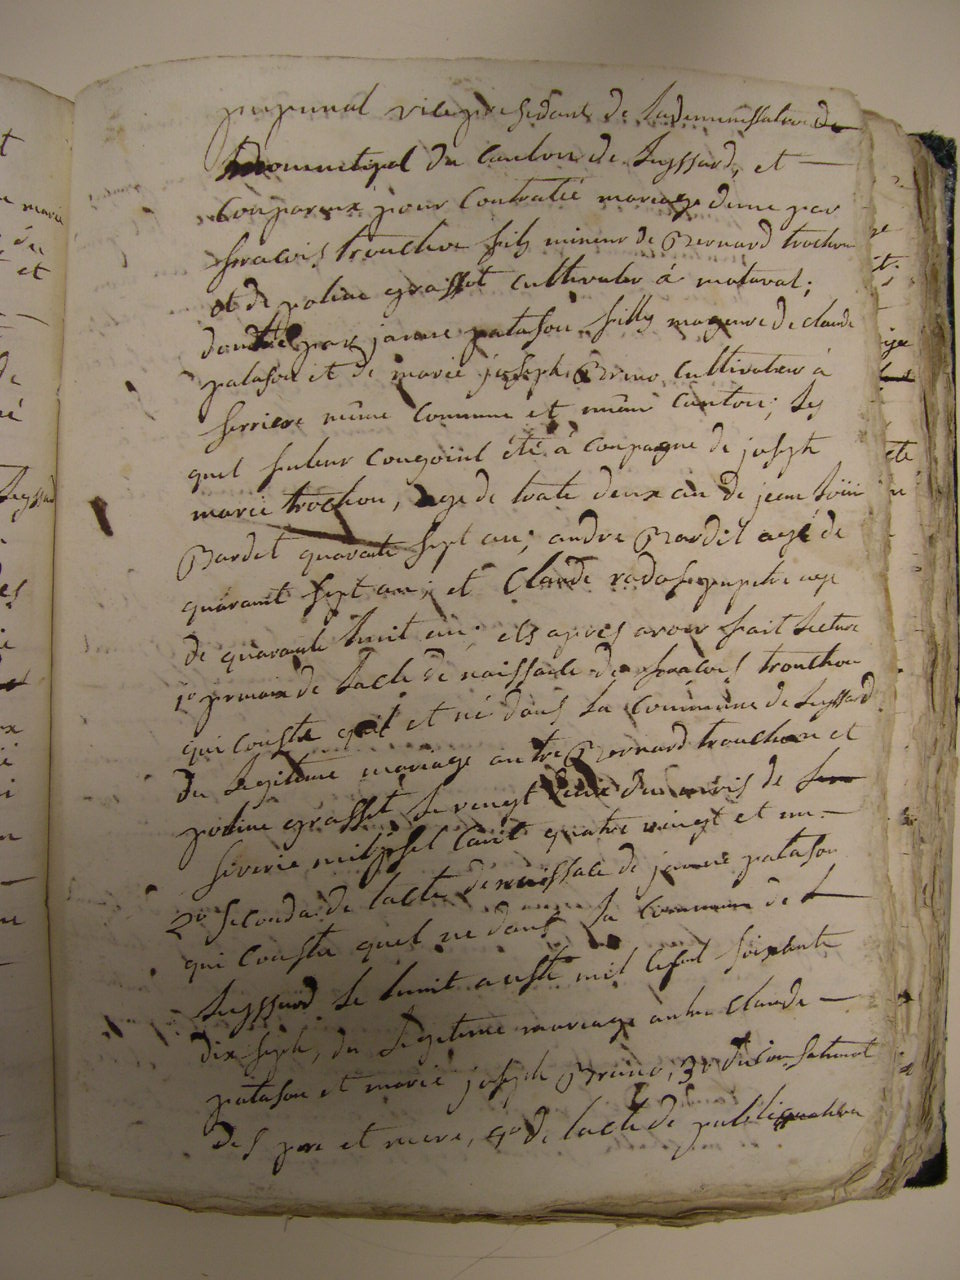 vice presidant de Ladminnissatration de
municipal du canton de Leyssard, et
comparux pour contratié mariage dune par
fracois trouchon fily mineur de Bernard trochon
et de poline grasset cultivateur á mataval;
dautre par janne patason filly mageure de claude
patason et de marie joseph Bruno, cultivateur à
serriere même commune et même canton; Les
quel futeur congoint été à conpagne de joseph
marie trochon, age de trate deux an de jean
Bardet quarante sept an; andre Bardet agé de
quarant sept an; et Claude age
de quarante huit an; els apres avoir fait Lecture
1º de Lacte de naissance de fracois trouchon
qui conste quil et né dans La commune de Leyssard
du Legiteme mariage antre Bernard trouchon et
poline grasset, Le vengt du mois de
siverié mil sel cant quatre vengt et un
2º seconda de lacte denaissace de janne patason
qui conste quel ne dans La commune de L
Leyssard Le huit auste mil sesant soixante
dix seple, du Legiteme mareage antre claude
patason et marie joseph Bruno, 3º du consatemot
des pere et mere, 4º de lacte de publiquation